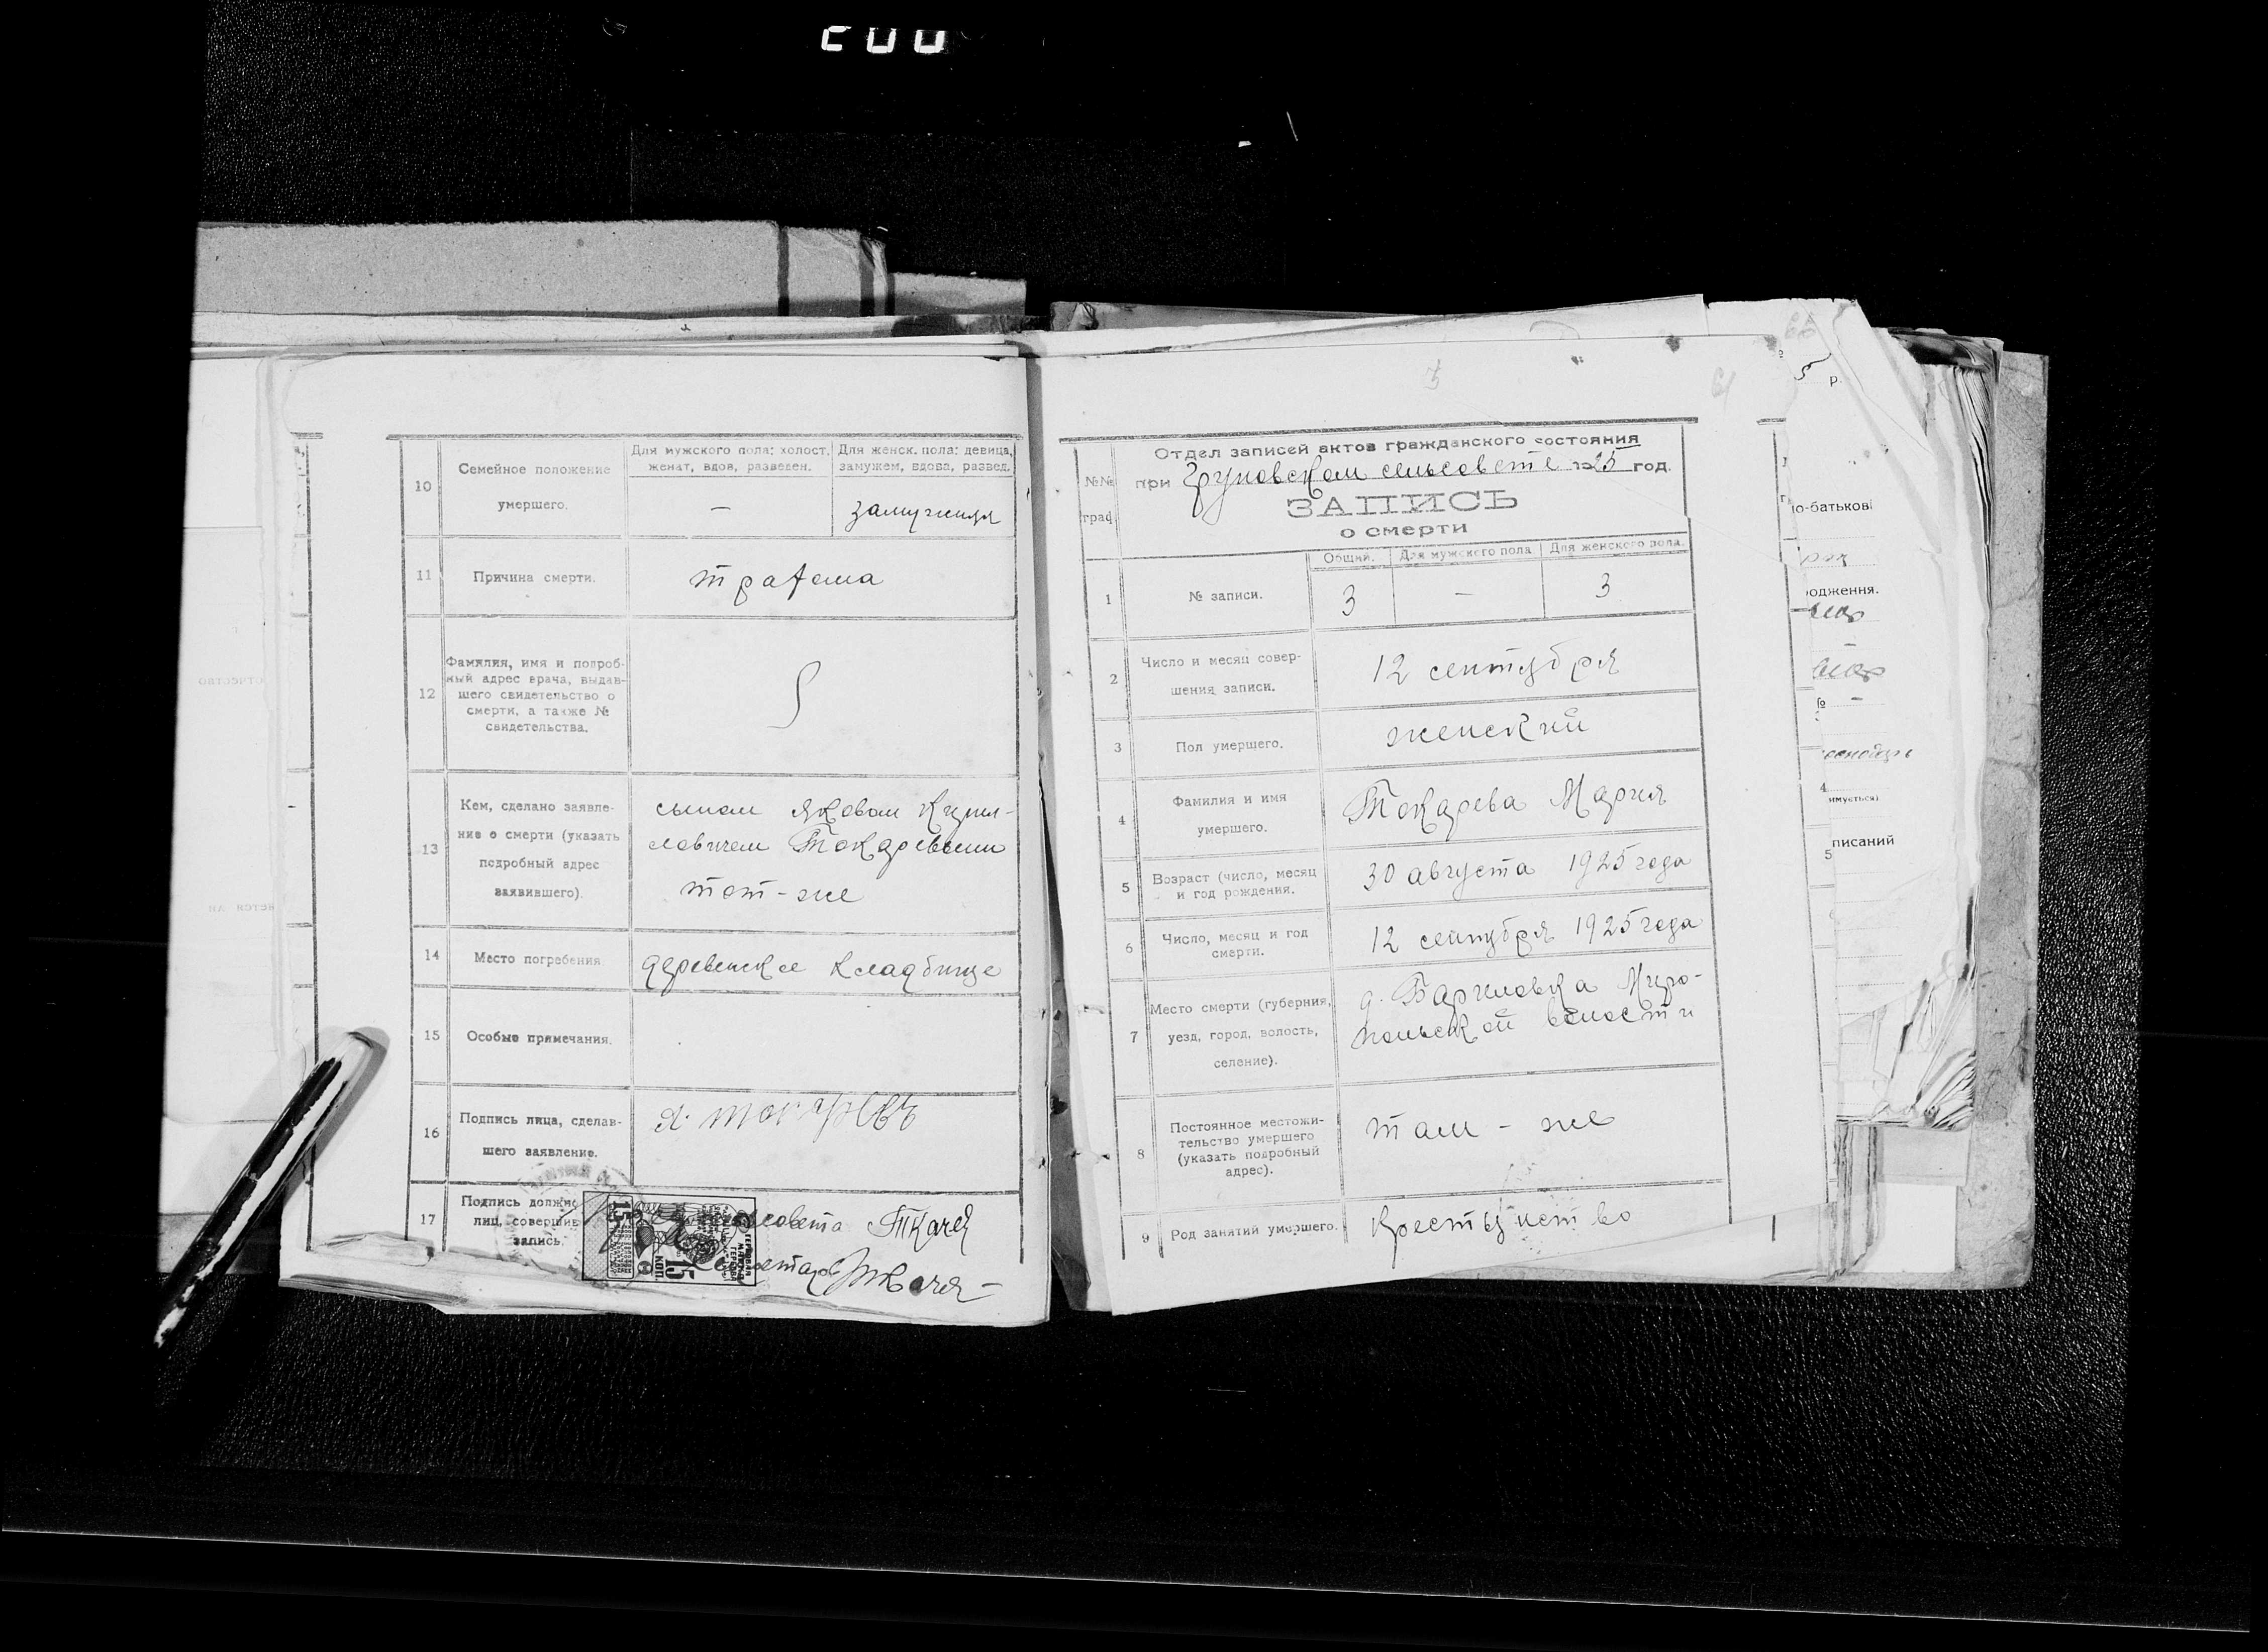 10
Семейное положение
умершего.
Для мужского пола: холост,
женат, вдов, разведен.
Для женск. пола: девица,
замужем, вдова, развед.
—
замужняя
11
Причина смерти.
трахома
12
Фамилия, имя и подроб-
ный адрес врача, выдав-
шего свидетельство о
смерти, а также №
свидетельства.
13
Кем, сделано заявле-
ние о смерти (указать
подробный адрес
заявившего).
сыном Яковом Кирил-
ловичем Токаревым
тот-же
14
Место погребения
деревенское кладбище
15
Особые примечания.
16
Подпись лица, сделав-
шего заявление.
Я. Токаревъ
17
Подпись должнос
лиц, совершив
запись.
совета Ткачев
15
КОП.
№№
граф.
Отдел записей актов гражданского состояния
при Груновском сельсовете 1925 год.
ЗАПИСЬ
о смерти
Общий.
Для мужского пола
Для женского пола.
1
№ записи.
3
—
3
2
Число и месяц совер-
шения записи.
12 сентября
3
Пол умершего.
женский
4
Фамилия и имя
умершего.
Токарева Мария
5
Возраст (число, месяц
и год рождения.
30 августа 1925 года
6
Число, месяц и год
смерти.
12 сентября 1925 года
7
Место смерти (губерния,
уезд, город, волость,
селение).
д. Бариловка Миро-
польской волости
8
Постоянное местожи-
тельство умершего
(указать подробный
адрес).
там - же
9
Род занятий умершего.
крестьянство
р.
ю-батькові
одження.
№
4
имується)
писаний
5